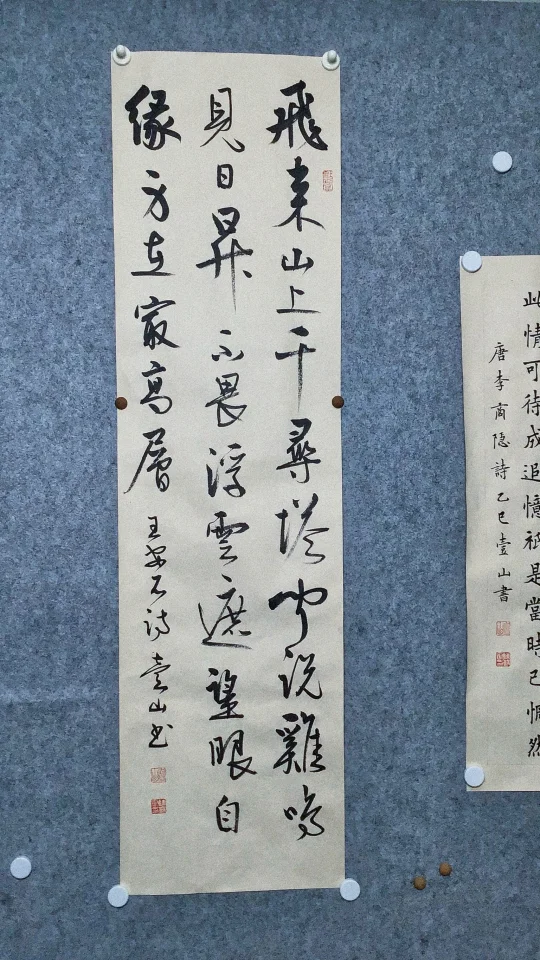 飛来山上千尋塔聞说雞鳴
見日昇不畏浮雲遮望眼自
緣身在最高層
王安石诗壹山书
此情可待成追憶祇是當時已惘然
唐李商隐詩乙巳壹山書